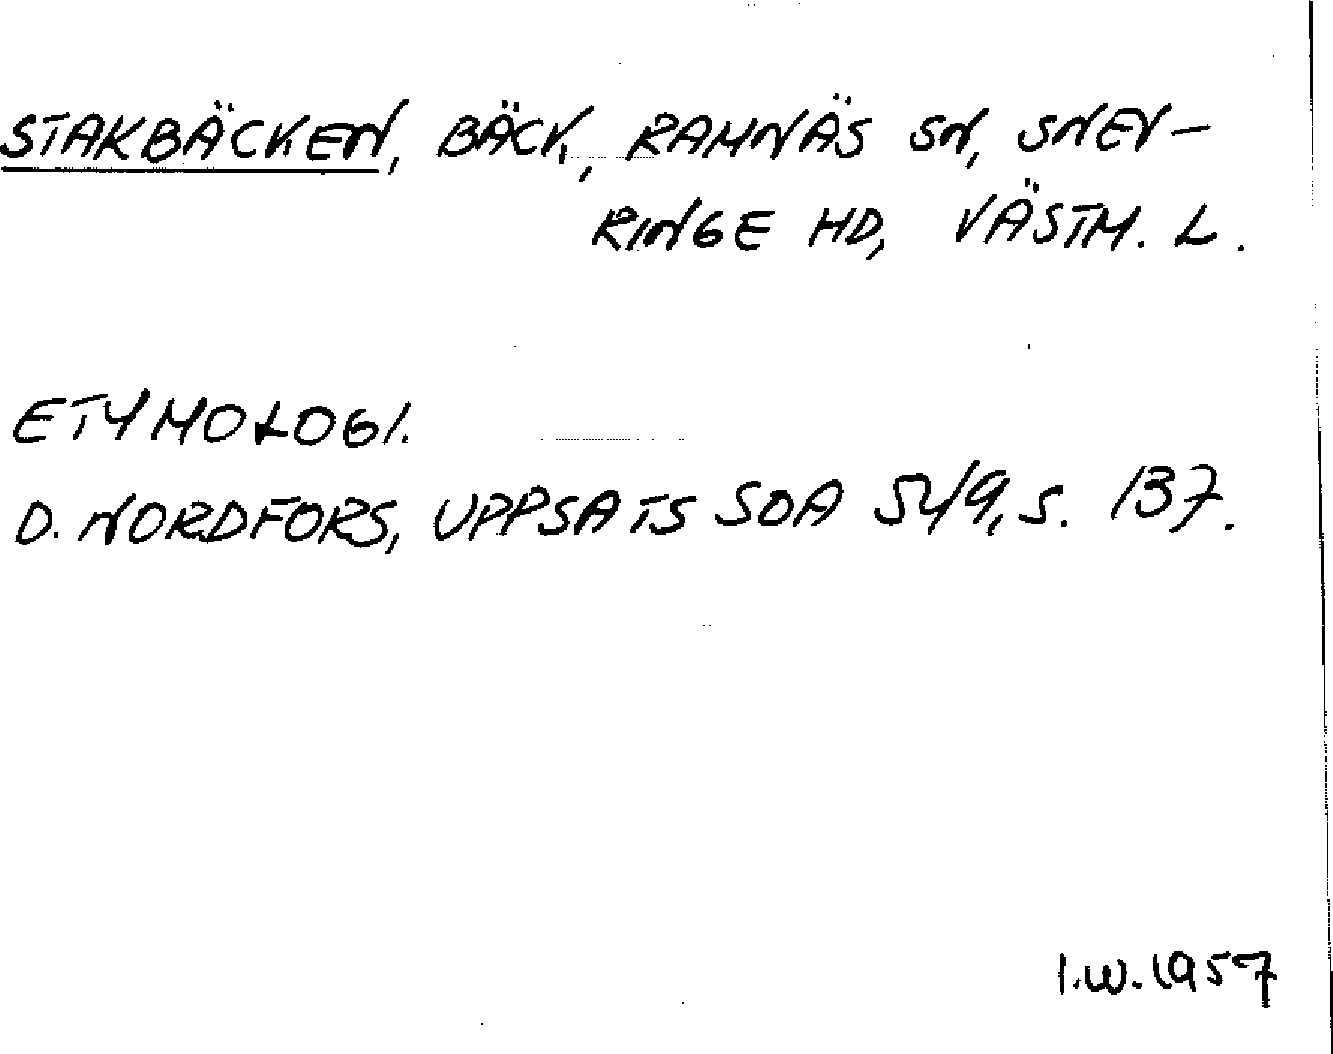 STAKBÄCKEN, BÄCK, RAMNÄS SN, SNEV-
RINGE HD, VÄSTM. L.
ETYMOLOGI.
D. NORDFORS, UPPSATS SOA 54/9, S. 137.
I.W. 1957